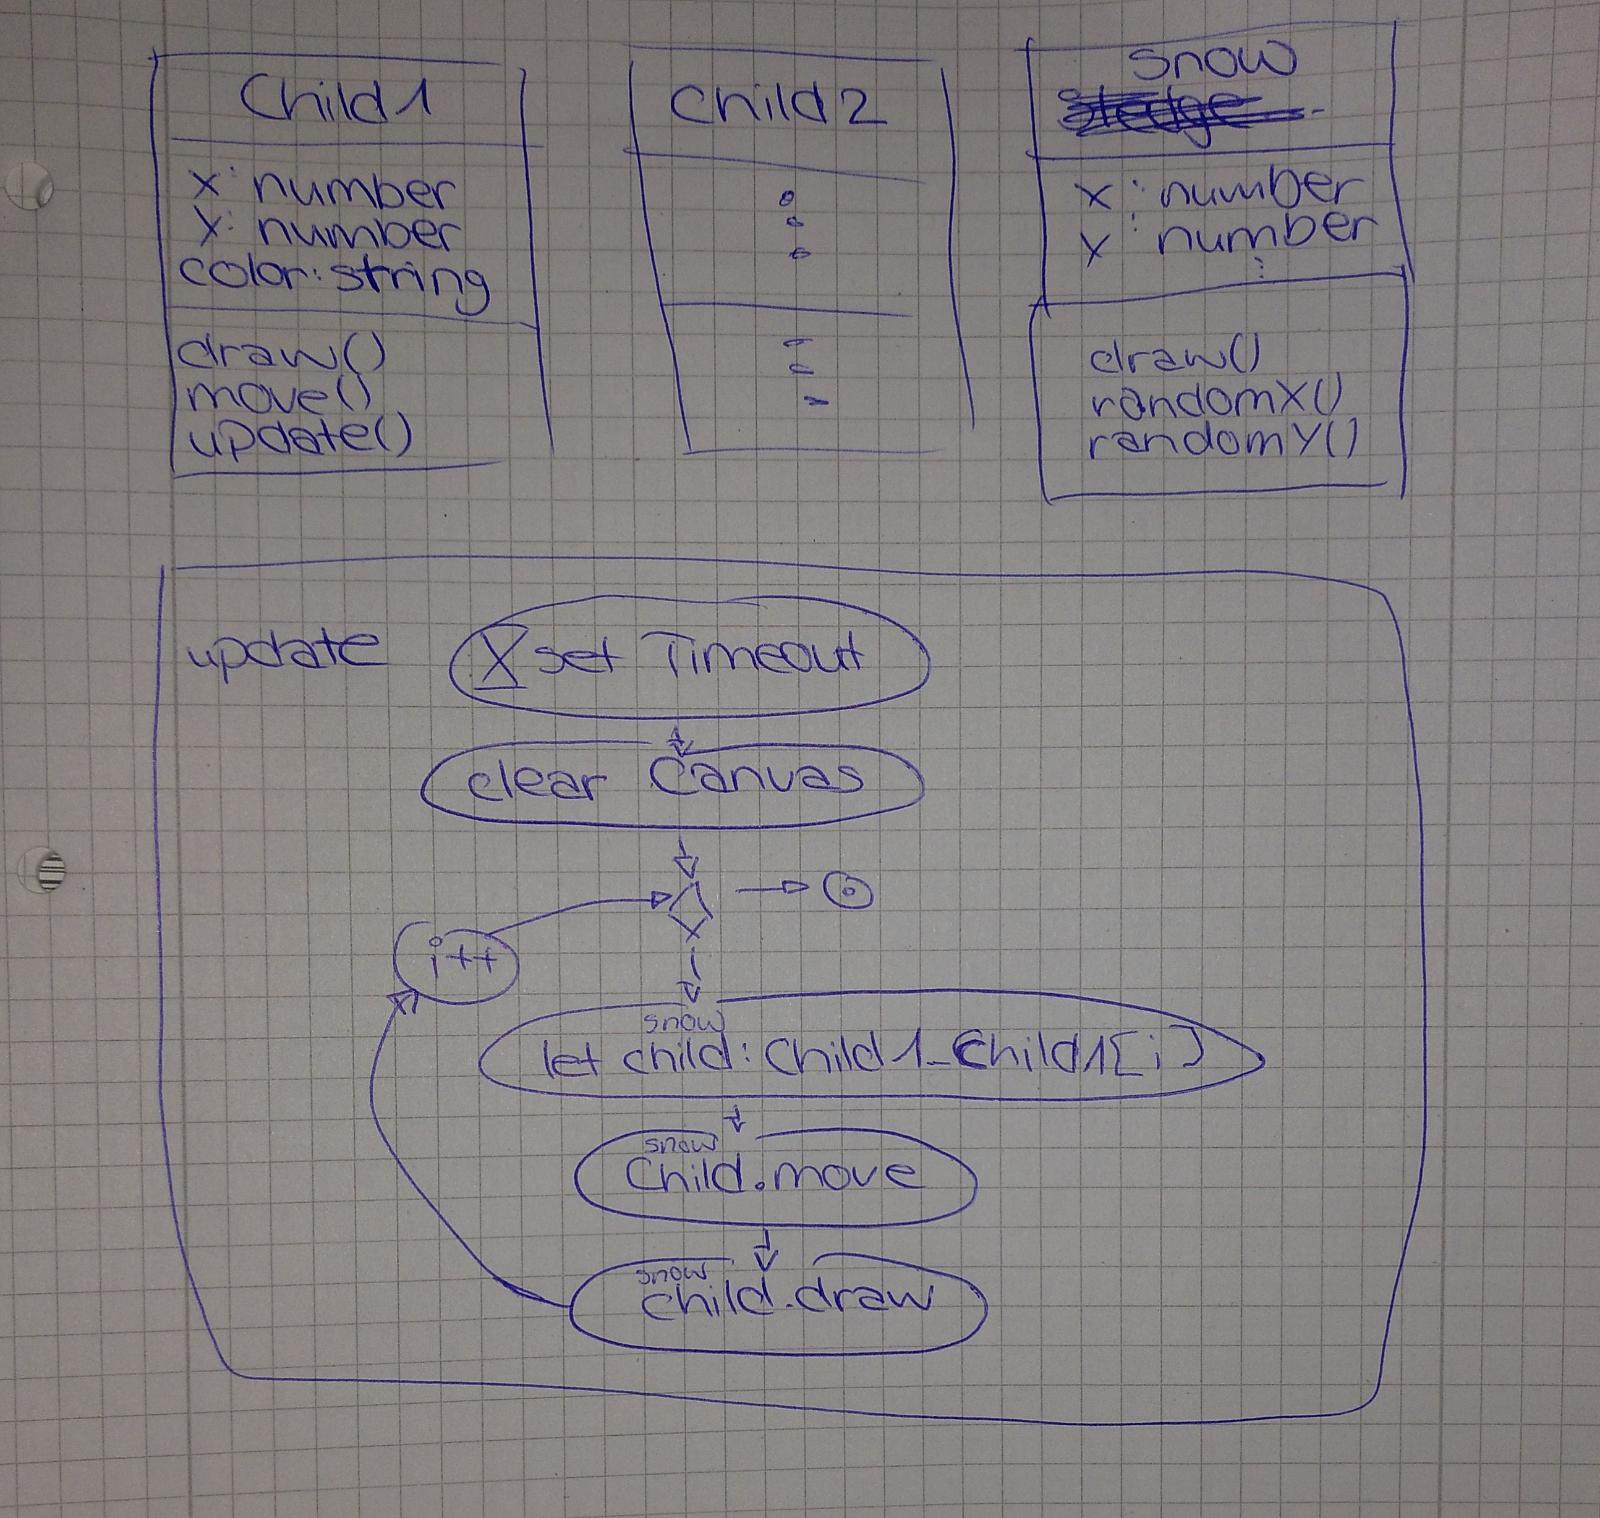 Child1
x: number
y: number
color: string
draw()
move()
update()
Child2
Snow
Sledge
x: number
y: number
draw()
randomX()
randomY()
update
set Timeout
clear Canvas
i++
snow
let child: Child1_Child1[i]
snow
Child.move
snow
child.draw